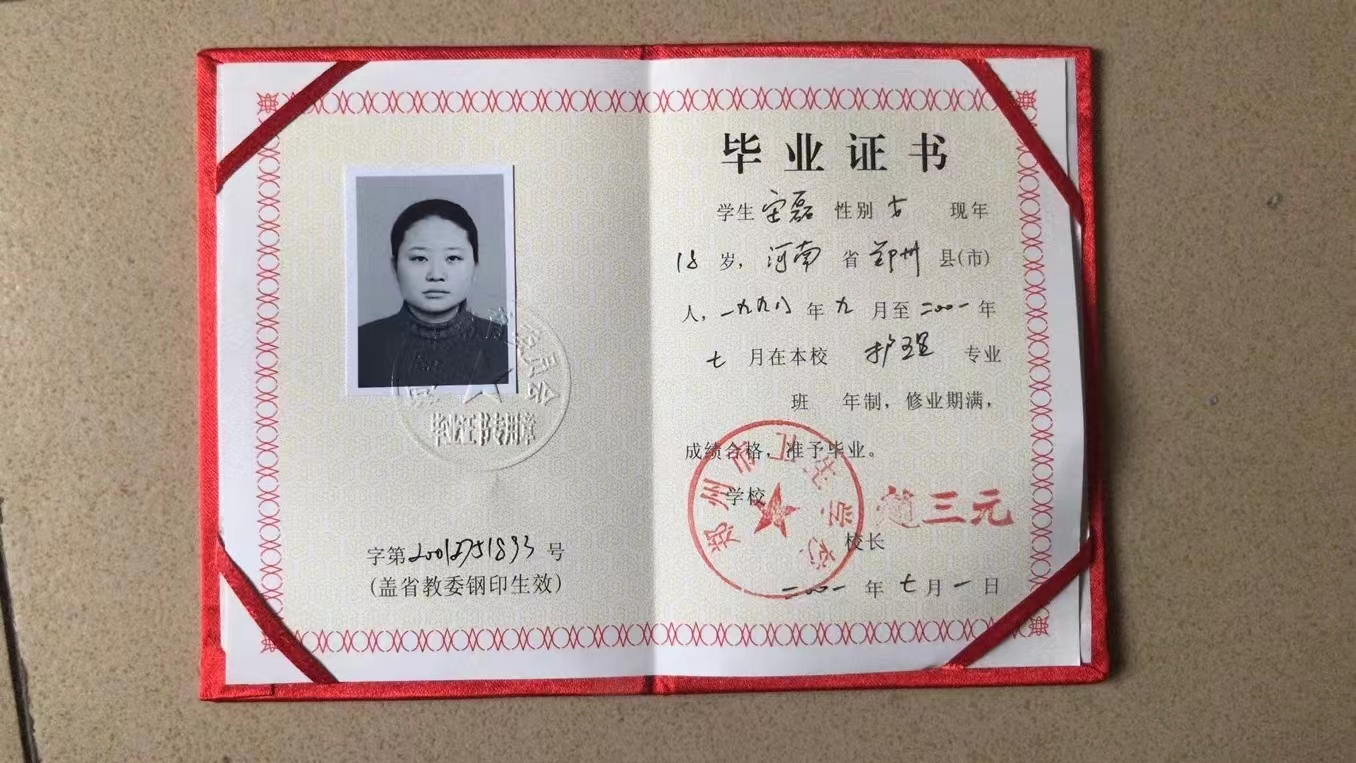 委员会
毕业证书专用章
字第2001 51893号
(盖省教委钢印生效)
毕业证书
学生 磊 性别 女 现年
18 岁，河南 省 郑州 县(市)
人，一九九八 年 九 月至 二〇〇一 年
七 月在本校 护理 专业
班 年制，修业期满，
成绩合格，准予毕业。
学校
郑州市卫生学校
赵三元
校长
二〇〇一 年 七 月 一 日